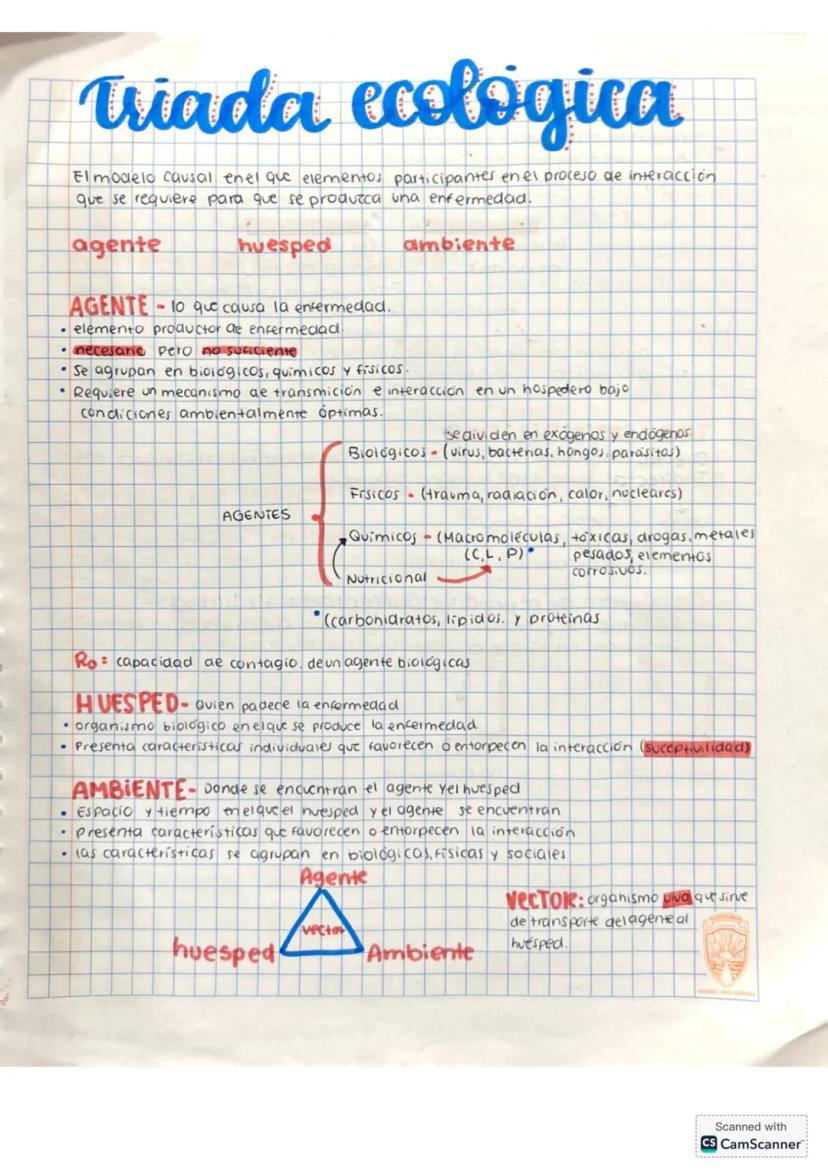 Triada ecológica
El modelo causal en el que elementos participantes en el proceso de interacción
que se requiere para que se produzca una enfermedad.
agente huesped ambiente
AGENTE - lo que causa la enfermedad.
• elemento productor de enfermedad
• necesario pero no suficiente
• Se agrupan en biológicos, químicos y físicos.
• Requiere un mecanismo de transmición e interacción en un hospedero bajo
condiciones ambientalmente óptimas.
se dividen en exógenos y endógenos
Biológicos - (virus, bacterias, hongos, parásitos)
Físicos - (trauma, radiación, calor, nucleares)
AGENTES
Químicos - (Macromoléculas, tóxicas, drogas, metales
(C, L, P)• pesados, elementos
corrosivos.
Nutricional
•(carbohidratos, lípidos. y proteínas
Ro = capacidad de contagio. de un agente biológicas
HUESPED - Quien padece la enfermedad
• organismo biológico en el que se produce la enfermedad
• Presenta características individuales que favorecen o entorpecen la interacción (suceptivilidad)
AMBiENTE - Donde se encuentran el agente y el huesped
• Espacio y tiempo en el que el huesped y el agente se encuentran
• presenta características que favorecen o entorpecen la interacción
• las características se agrupan en biológicas, físicas y sociales
Agente
vector
huesped Ambiente
VECTOR: organismo vivo que sirve
de transporte del agente al
huésped.
Scanned with
CS CamScanner